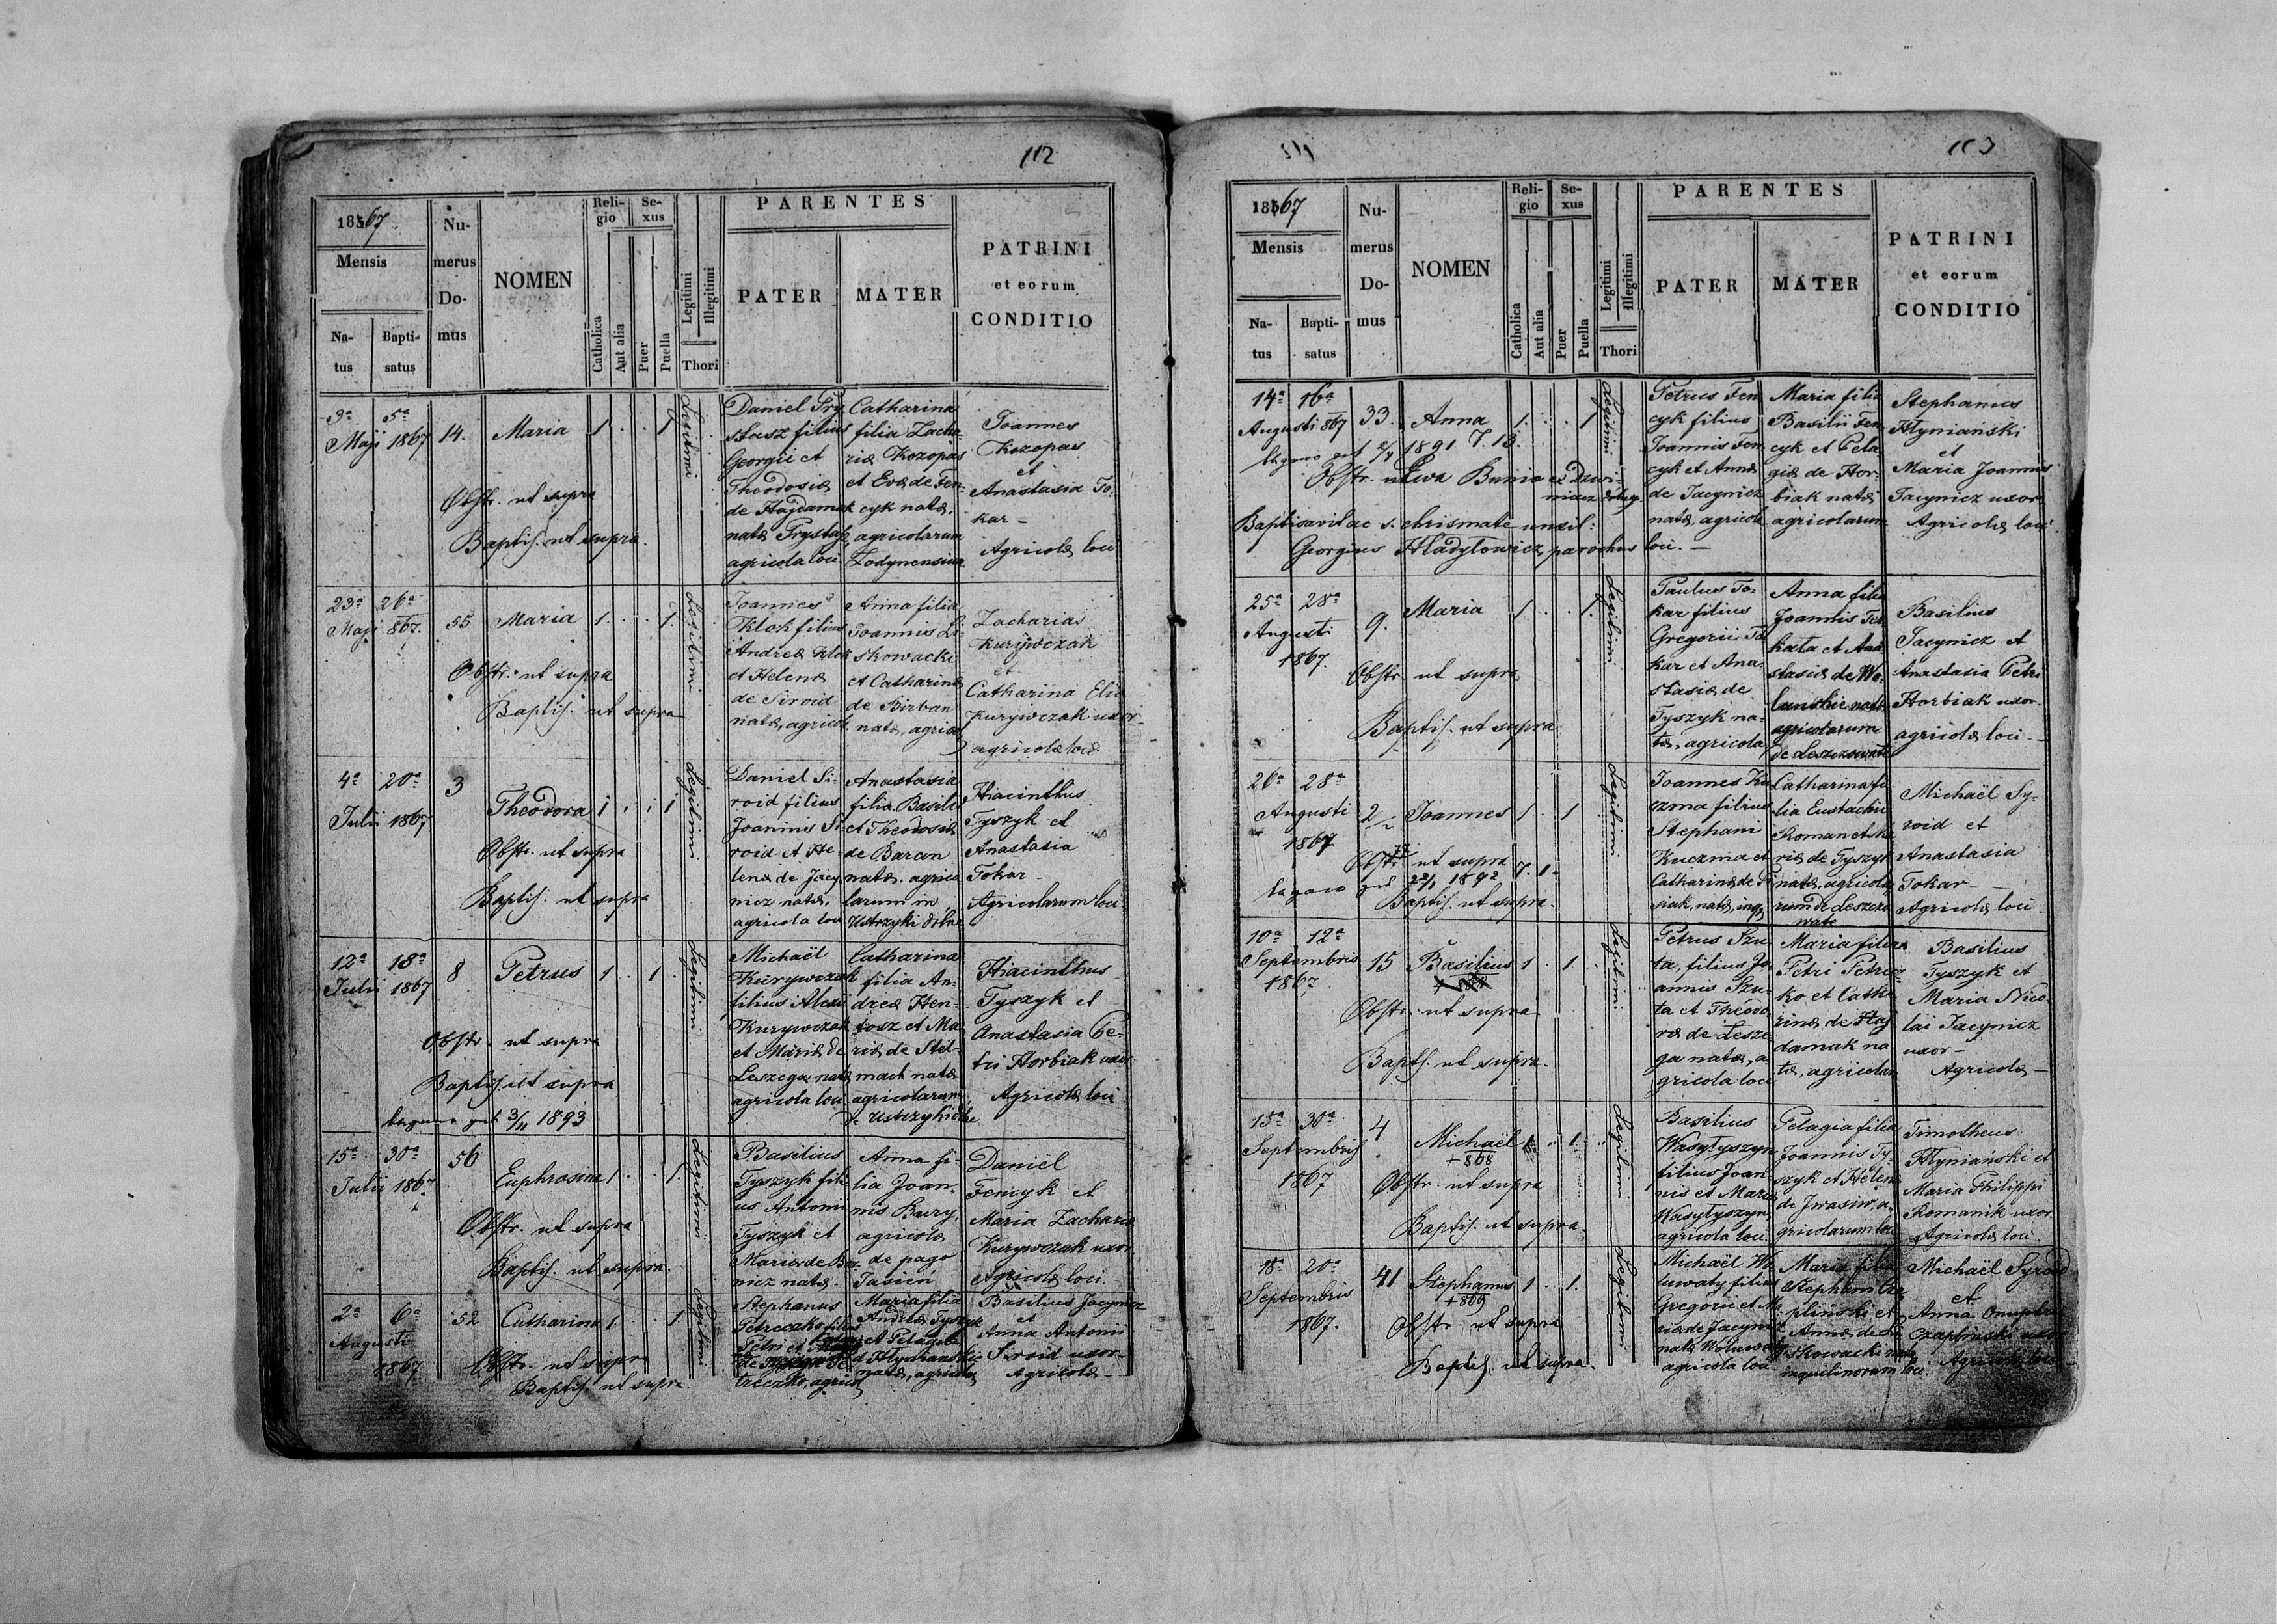 112
1867.
Mensis
Na-
tus
Bapti-
satus
Nu-
merus
Do-
mus
NOMEN
Reli-
gio
Catholica
Aut alia
Se-
xus
Puer
Puella
Legitimi
Illegitimi
Thori
PARENTES
PATER
MATER
PATRINI
et eorum
CONDITIO
3a 5a
Maji 1867
14.
Maria
1 . . 1
Legitimi
Obstr. ut supra
Baptis. ut supra.
Daniel Pry-
stasz filius
Georgii et
Theodosiæ
de Hajdamak
natæ Prystasz
agricola loci
Catharina
filia Zacha-
riæ Kozopas
et Evæ de Fen-
cyk natæ,
agricolarum
Lodynensium
Joannes
Kozopas
et
Anastasia To-
kar –
Agricolæ loci
23a 26a
Maji 867.
55
Maria
1 . . 1.
Legitimi
Obstr. ut supra
Baptis. ut supra
Joannes
Klok filius
Andreæ Klok
et Helenæ
de Siroid
natæ, agricol
Anna filia
Joannis Li-
skowacki
et Catharinæ
de Birban
natæ, agricol
Zacharias
Kurywczak
et
Catharina Eliæ
Kurywczak uxor
agricolæ loci
4a 20a
Julii 1867
3
Theodora
1 . . 1
Legitimi
Obstr. ut supra
Baptis. ut supra
Daniel Si-
roid filius
Joannis Si-
roid et He-
lenæ de Jacy-
nicz natæ,
agricola loci
Anastasia
filia Basilii
et Theodosiæ
de Baran
natæ. agrico
larum in
Ustrzyki dolne
Hiacinthus
Tyszyk et
Anastasia
Tokar –
Agricolarum loci
12a 18a
Julii 1867
8
Petrus
1 . 1 .
Legitimi
Obstr. ut supra
Baptis. ut supra
3/11 1893
Michaël
Kurywczak
filius Alexii
Kurywczak
et Mariæ de
Leszega natæ
agricola loci
Catharina
filia An-
dreæ Hen-
tosz et Ma-
riæ de Stel-
mach natæ
agricolarum
de Ustrzyki dolne
Hiacinthus
Tyszyk et
Anastasia Pe-
tri Horbiak uxor
Agricolæ loci
15a 30a
Julii 1867
56
Euphrosina
1 . . 1.
Legitimi
Obstr. ut supra
Baptis. ut supra.
Basilius
Tyszyk fili-
us Antonii
Tyszyk et
Mariæ de
nicz natæ.
Anna fi-
lia Joan-
nis Bury,
agricolæ
de pago
Jasień
Daniel
Fencyk et
Maria Zachariæ
Kurywczak uxor
Agricolæ loci
2a 6a
Augusti
1867
52
Catharina
1 . . 1
Legitimi
Obstr. ut supra
Baptis. ut supra
Stephanus
Petreczko filius
Petri et
treczko, agricol
Maria filia
Andreæ Tyszyk
et Pelagiæ
de Hłyniański
natæ, agricolæ
Basilius Jacynicz
et
Anna Antonii
Siroid uxor –
Agricolæ –
113
1867
Mensis
Na-
tus
Bapti-
satus
Nu-
merus
Do-
mus
NOMEN
Reli-
gio
Catholica
Aut alia
Se-
xus
Puer
Puella
Legitimi
Illegitimi
Thori
PARENTES
PATER
MATER
PATRINI
et eorum
CONDITIO
14a 16a
Augusti 867
33.
Anna
1. . . 1
Legitimi
1891
Obstr. Ewa Bunio
Baptisavit ac s. chrismate unxit:
Georgius Hładyłowicz, parochus
Petrus Fen
cyk filius
Joannis Fen
cyk et Annæ
de Jacynicz
natæ agricola
loci. –
Maria filia
Basilii Fen
cyk et Pela
giæ de Hor-
biak natæ
agricolarum
Stephanus
Hłyniański
et
Maria Joannis
Jacynicz uxor
Agricolæ loci.
25a 28a
Augusti
1867.
9.
Maria
1 . . 1.
Legitimi
Obstr. ut supra
Baptis. ut supra
Paulus To-
kar filius
Gregorii To
kar et Ana-
stasiæ de
Tyszyk na-
tæ, agricola
Anna filia
Joannis
et Ana
stasiæ de Wo-
lanskie natæ
agricolarum
de Leszczowate
Basilius
Jacynicz et
Anastasia Petri
Horbiak uxor.
agricolæ loci –
26a 28a
Augusti
1867
2
Joannes
1 . 1
Legitimi
Obstr. ut supra
1892
Baptis. ut supra.
Joannes Ku
czma filius
Stephani
Kuczma et
Catharinæ de
siak, natæ, inq
Catharina fi
lia Eustachii
Roman et Ma
riæ de Tyszyk
natæ, agricola
rum de Leszczo
wate
Michaël Sy-
roid et
Anastasia
Tokar –
Agricolæ loci.
10a 12a
Septembris
1867
15
Basilius
1 . 1 .
Legitimi
Obstr. ut supra
Baptis. ut supra.
Petrus Szu
ta, filius Jo-
annis Szu-
ta et Theodo-
ræ de Lesze
ga natæ, a-
gricola loci
Maria filia
Petri Petrecz
ko et Catha
rinæ de Haj
damak na
tæ, agricolar
Basilius
Tyszyk et
Maria Nico-
lai Jacynicz
uxor –
Agricolæ –
15a 30a
Septembris
1867
4
Michaël
+ 868
1 . 1.
Legitimi
Obstr. ut supra
Baptis. ut supra.
Basilius
Wasyłyszyn
filius Joan-
nis et Mariæ
Wasyłyszyn
agricola loci
Pelagia filia
Joannis Ty-
szyk et Helenæ
de Iwasiw, a-
gricolarum loci
Timotheus
Hłyniański et
Maria Philippi
Romanik uxor.
Agricolæ loci
18a 20a
Septembris
1867.
41
Stephanus
+ 869
1 . 1.
Legitimi
Obstr. ut supra
Baptis. ut supra.
Michaël Wo
łuwaty filius
Gregorii et Ma
riæ de Jacynicz
natæ Wołuwaty
agricola loci
Maria filia
Stephani Cza
pliński et
Annæ de Li
skowacki natæ
inquilinorum loci.
Michaël Syroid
et
Anna Onuphrii
Czapliński uxor
Agricolæ loci –